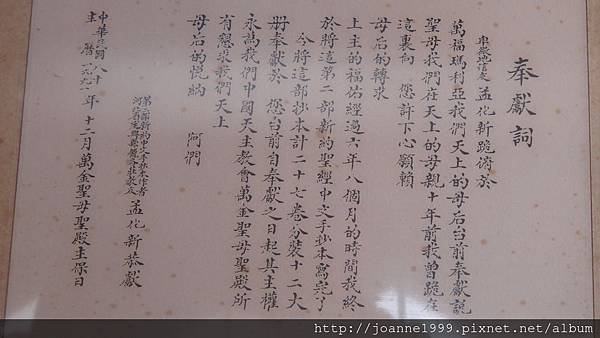 奉獻詞
卑微地信友 孟化新跪俯於
萬福瑪利亞我們天上的母后台前奉獻說
聖母我們在天上的母親十年前我曾跪在
這裏向 您許下心願賴
母后的轉求
上主的福佑經過六年八個月的時間我終
於將這第二部新約聖經中文手抄本寫完了
今將這部抄本計二十七卷分裝十二大
册奉獻於 您台前自奉獻之日起其主權
永為我們中國天主教會萬金聖母聖殿所
有懇求我們天上
母后的悅納 阿們
第二部新約中文手抄本作者
孟化新恭獻
中華民國八十
主曆一九九一年十二月萬金聖母聖殿主保日
http://joanne1999.pixnet.net/album